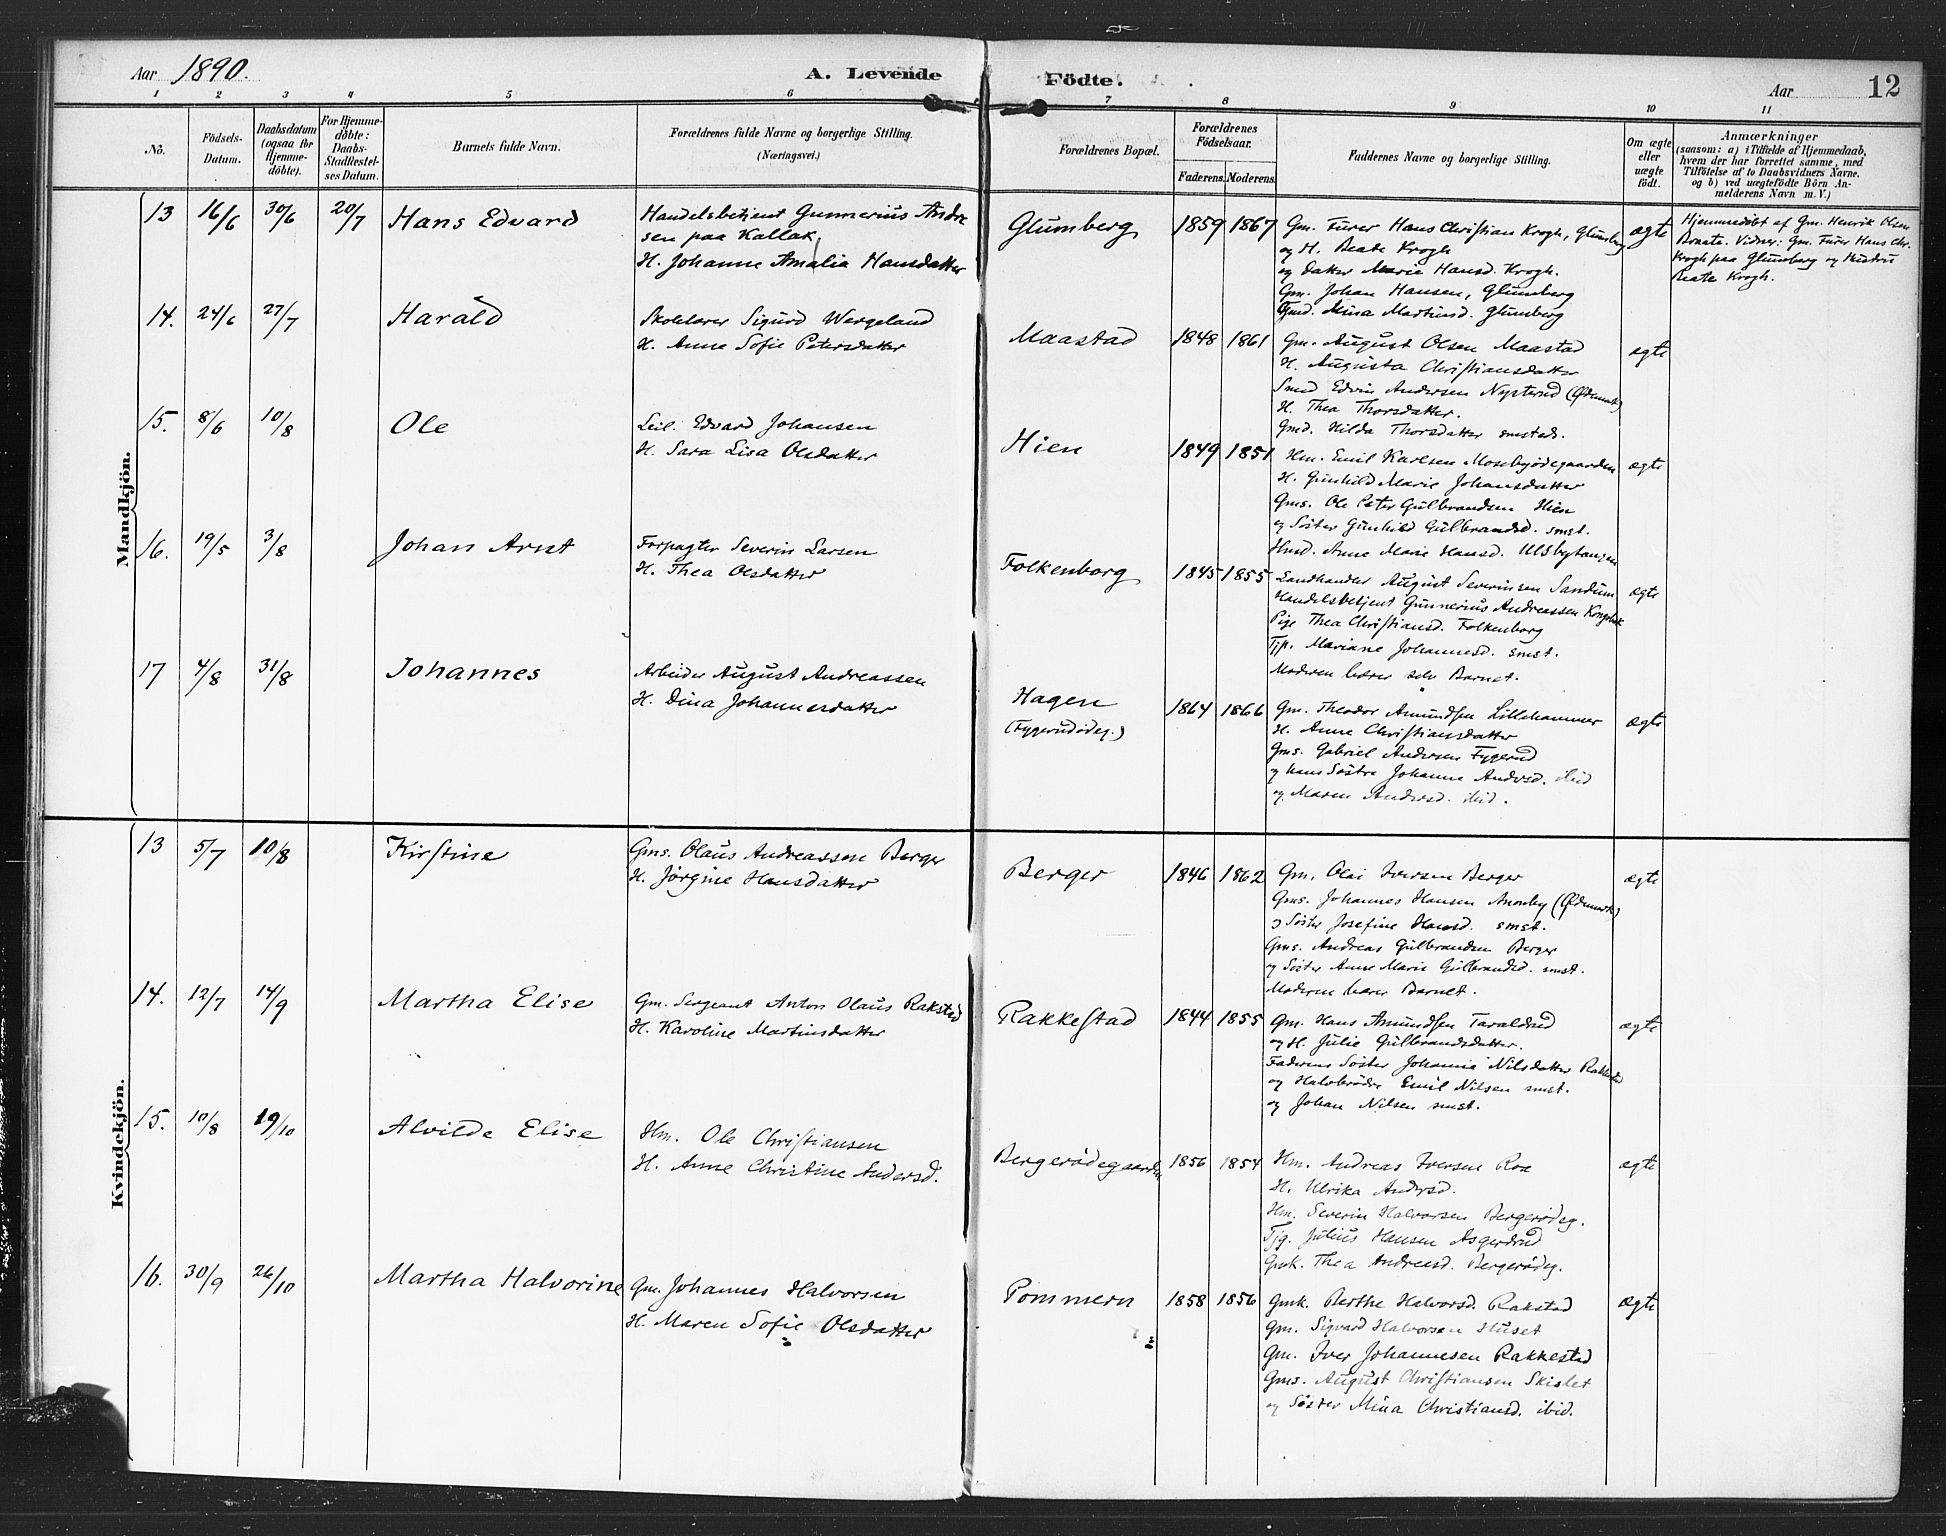 Aar 1890.
A. Levende
Födte.
Aar
12
1 2 3 4 5 6 7 8 9 10 11
No.
Födsels-
Datum.
Daabsdatum
(ogsaa for
Hjemme-
döbte).
For Hjemme-
döbte:
Daabs-
Stadfæstel-
ses Datum.
Barnets fulde Navn.
Forældrenes fulde Navne og borgerlige Stilling.
(Næringsvei.)
Forældrenes Bopæl.
Forældrenes
Födselsaar.
Faderens. Moderens.
Faddernes Navne og borgerlige Stilling.
Om ægte
eller
uægte
födt.
Anmærkninger
(saasom: a) i Tilfælde af Hjemmedaab,
hvem der har forrettet samme, med
Tilföielse af to Daabsvidners Navne.
og b) ved uægtefödte Börn An-
melderens Navn m. V.)
Mandkjön.
13 16/6 30/6 20/7 Hans Edvard
Handelsbetjent Gunnerius Andre
sen paa Kallak
H. Johanne Amalia Hansdatter
Glumberg 1859 1867
Gm. Furer Hans Christian Krogh, Glumberg
og H. Beate Krogh
og Datter Marie Hansd. Krogh.
Gm. Johan Hansen, Glumberg
Gmd. Mina Martinsd. Glumberg
ægte
Hjemmedöbt af Gm. Henrik Olsen
Vidner: Gm. Furer Hans Chr.
Krogh paa Glumberg og Hustru
Beate Krogh.
14. 24/6 27/7 Harald
Skolelærer Sigurd Wergeland
H. Anne Sofie Petersdatter
Maastad 1848 1861
Gm. August Olsen Maastad
H. Augusta Christiansdatter
Smed Edvin Andersen Nysterud (Ødemark)
H. Thea Thorsdatter.
Gmd. Hilda Thorsdatter smstds.
ægte
15. 8/6 10/8 Ole
Leil. Edvard Johansen
H. Sara Lisa Olsdatter
Hien 1849 1851
Hm. Emil Karlsen Mosebyödegaarden
H. Gunhild Marie Johansdatter
Gms. Ole Peter Gulbrandsen Hien
og Söster Gunhild Gulbrandsd. smst.
Hmd. Anne Marie Hansd. Ulsbytangen
ægte
16. 19/5 3/8 Johan Arnt
Forpagter Severin Larsen
H. Thea Olsdatter
Folkenborg 1845 1855
Landhandler August Severinsen Sandum
Handelsbetjent Gunnerius Andreassen
Pige Thea Christiansd. Folkenborg
Tjp. Mariane Johannesd. smst.
Moderen bærer selv Barnet.
ægte
17 4/8 31/8 Johannes
Arbeider August Andreassen
H. Dina Johannesdatter
Hagen
(Fygerudödeg.)
1864 1866
Gm. Theodor Amundsen Lillehammer
H. Anne Christiansdatter
Gms. Gabriel Andersen Fygerud
og hans Söstre Johanna Andersd. ibid
og Maren Andersd. ibid.
ægte
Kvindekjön.
13 5/7 10/8 Kirstine
Gms. Olaus Andreassen Berger
H. Jörgine Hansdatter
Berger 1846 1862
Gm. Olai Iversen Berger
Gms. Johannes Hansen Moenby (Ødemark)
og Söster Josefine Hansd. smst.
Gms. Andreas Gulbrandsen Berger
og Söster Anne Marie Gulbrandsd. smst.
Moderen bærer Barnet.
ægte
14. 12/7 14/9 Martha Elise
Gm. Sergeant Anton Olaus Rakstad
H. Karoline Martinsdatter
Rakkestad 1844 1855
Gm. Hans Amundsen Taraldrud
og H. Julie Gulbrandsdatter.
Faderens Söster Johanne Nilsdatter Rakkestad
og Halvbröder Emil Nilsen smst.
og Johan Nilsen smst.
ægte
15. 10/8 19/10 Alvilde Elise
Hm. Ole Christiansen
H. Anne Christine Andersd.
Bergerödegaarden 1856 1854
Hm. Andreas Iversen Roa
H. Ulrika Andersd.
Hm. Severin Halvorsen Bergerödeg.
Tjg. Julius Hansen Asgerdrud
Gmk. Thea Andreasd. Bergerödeg.
ægte
16. 30/9 26/10 Martha Halvorine
Gm. Johannes Halvorsen
H. Maren Sofie Olsdatter
Pommern 1858 1856
Gmk. Berthe Halvorsd. Rakstad
Gm. Sigvard Halvorsen Huset
Gm. Iver Johannesen Rakkestad
Gms. August Christiansen Skislet
og Söster Mina Christiansd. ibid.
ægte